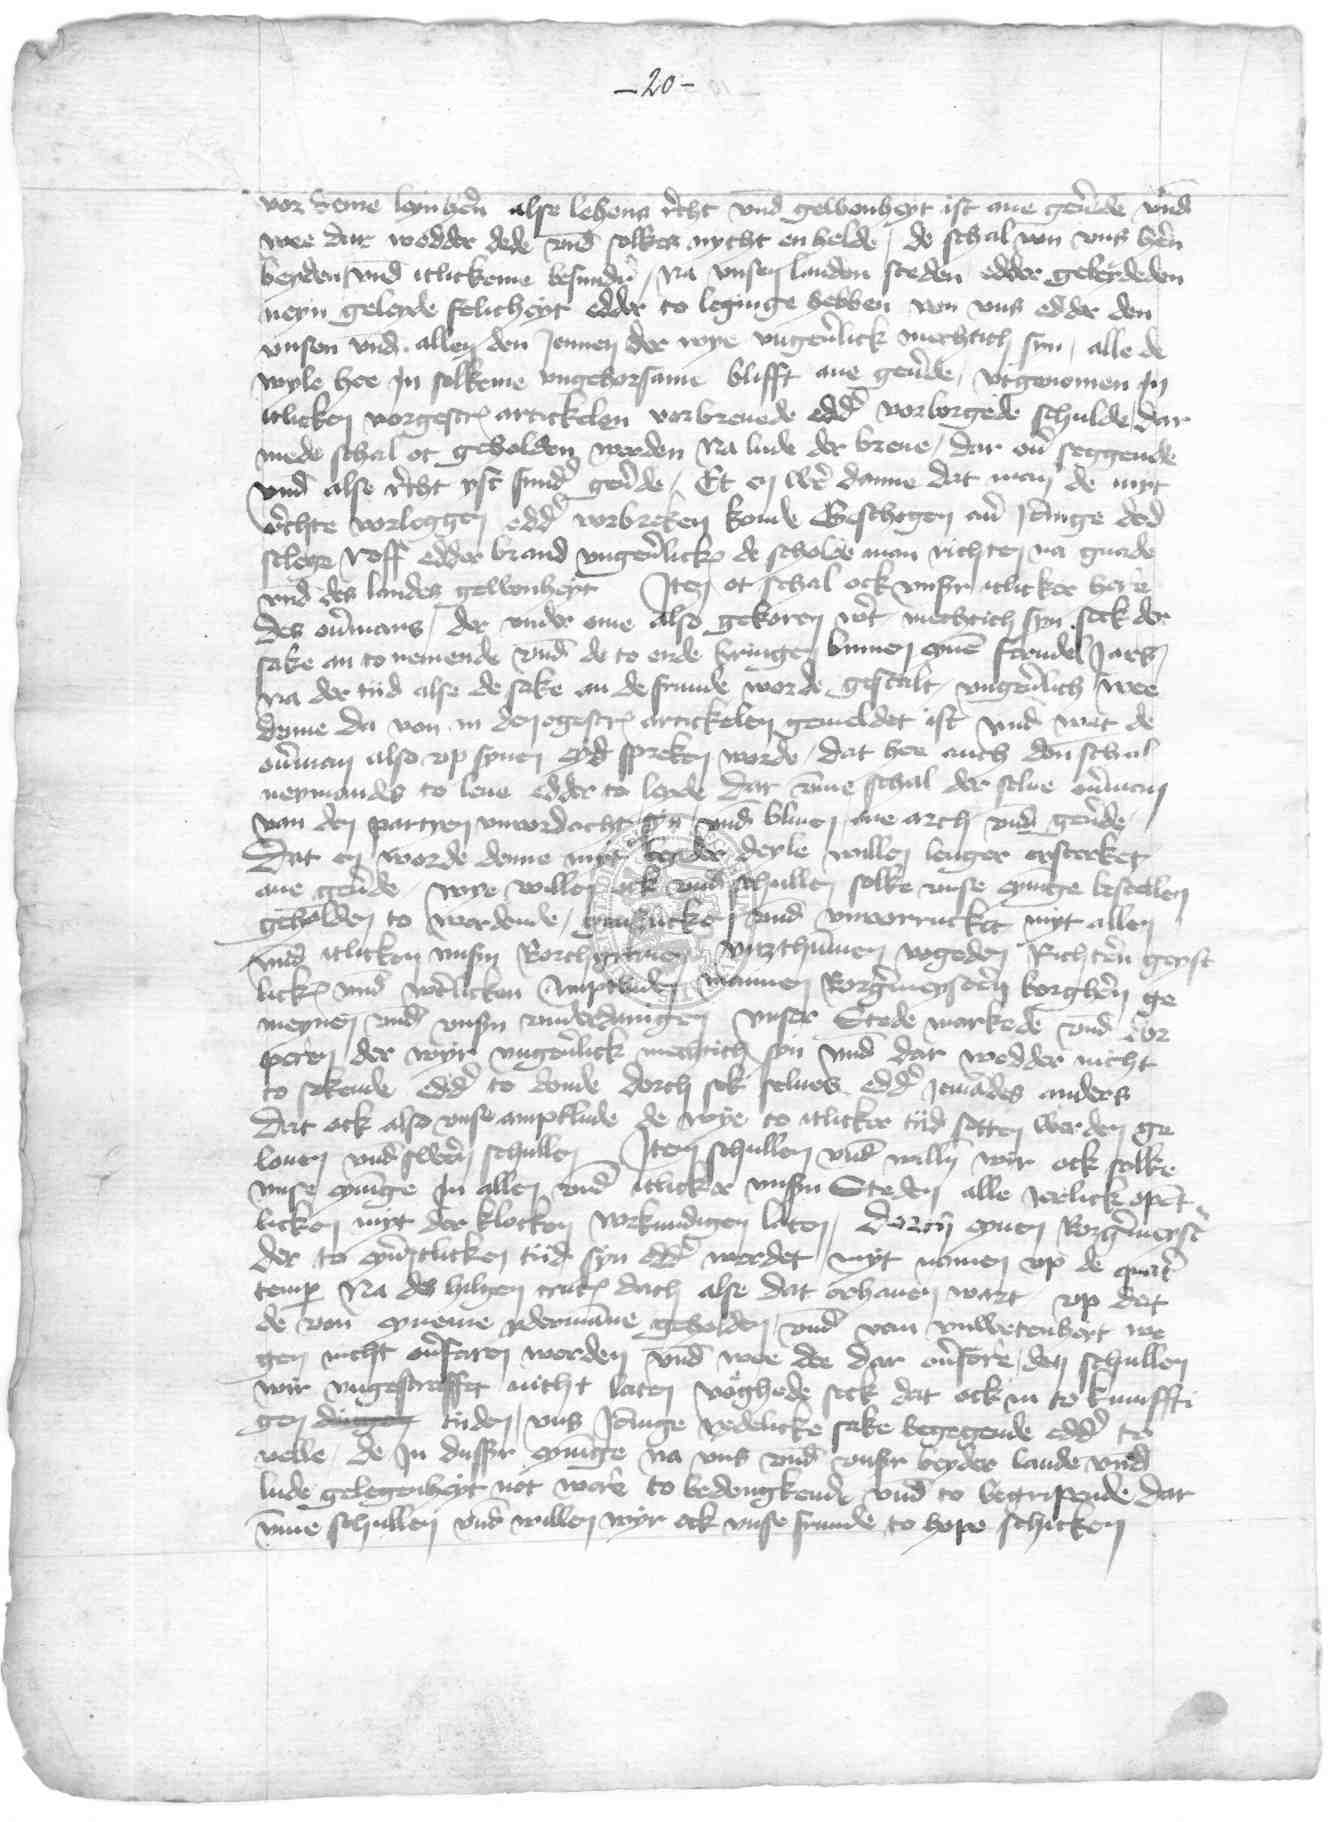 -20-
vor deme leynhern alse lehens recht vnd gewonheyt ist ane geuerde vnd
wee dar wedder dede vnd solkes nycht en helde / de schal von vns hern
beyden vnd itlickeme besunder / Na vnsen landen steden edder gebeydeden
neyn geleyde felicheyt edder to leginge hebben von vns edder den
vnsen vnd allen den Jennen der wye vngeuerlick mechtich syn / alle de
wyle hee Jn solkeme vngehorsame blifft ane geuerde / vtgenomen Jn
itlicken vorgescr artickelen vorbreuede edder vorborgede schulde / dar
mede schal ot geholden werden Na lude der breue / dar ouer seggende
vnd alse recht yst sunder geuerde / Et en were danne dat man de myt
rechte vorleggen edder vorbreken konde Geschegen auer Jenige dod
slege roff edder brand vngeuerlick de scholde man richten na gnade
vnd des landes gewonheyt Item ot schal ock vnser itlicker here
des ouermans / der vnder ome also gekoren wert mechtich syn seck der
sake an to nemende vnd de to ende bringen bynnen eynem ferndel Jars /
na der tijd alse de sake an de frunde worde gestalt / vngeuerlich / wee
denne da von in den egescr artickelen gemeldet ist vnd wat de
ouerman also vp synen eyd spreken worde / dat hee auch don schal
neymandes to leue edder to leyde Dar vmme schal der selue ouerman
van den partyen vnvordacht syn vnd bliuen ane arch vnd geuerde /
Dat en worde denne myt beyder deyle willen lenger erstrecket
ane geuerde / wye willen ock vnd schullen solke vnse eynunge bestellen
geholden to werdende / gentzlicken vnd vnvorrucket myt allen
vnd itlicken vnsen Borchgreuen vitzthumen vogeden Richtern geyst
lick vnd wertlicken Amptluden mannen Borgermeystern borghern ge
meynen vnd vnsen vnderdanigen vnser Stede markede vnd dor
peren der wyr vngeuerlick mechtich syn vnd dar wedder nicht
to sokende edder to donde dorch sek selues edder Jemandes anders
Dat ock also vnse amptlude de wye to itlicker tijd setten werden ge
louen vnd sweren schullen Item schullen vnd willen wir ock solke
vnse eynunge Jn allen vnd itlicker vnsen Steden alle Jerlick open
licken myt der klocken vorkundigen laten / Dorch eynen Borgermeyster
der to itlicken tijd syn edder werdet / myt namen vp de quater
temper Na des hilgen crutz dach alse dat erhauen wart vp dat
de von eyneme ydermanne geholden vnd van vnwetenheyt we
gen nicht ouerfaren werden vnd wee dee dar ouerfore / den schullen
wir vngestraffet nicht laten voghede seck dat ock in to kumffti
gen tijden / vns Jenige redelicke sake begegende edder to
velle / de Jn dusser eynunge na vns vnd vnser beyder lande vnd
lude gelegenheyt not were to bedengkende vnd to begripende dar
vmme schullen vnd willen wyr ock vnse frunde to hope schicken